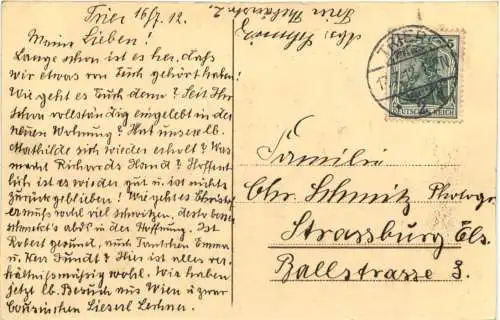 Trier 16/7. 12.
Meine Lieben!
Lange schon ist es her, dass
wir etwas von Euch gehört haben!
Wie geht es Euch denn? Seit Ihr
schon vollständig eingelebt in der
neuen Wohnung? Hat unsere lb.
Mathilde sich wieder erholt? Was
macht Richards Hand? Hoffent
lich ist es wieder gut u. ist nichts
zurückgeblieben! Wie geht es
er muss wohl viel schwitzen, desto besser
schmeckt's abds in der Hoffnung. Ist
Robert gesund, auch Tantchen Emma
u. Ihr Hier ist alles ver
hältnissmässig wohl. Wir haben
jetzt lb. Besuch aus Wien u zwar
Lieserl Lechner.
Abs:
Trier
TRIER
2
5
DEUTSCHES REICH
Familie
Chr. Schmitz Photogr.
Strassburg Els.
Ballstrasse 3.